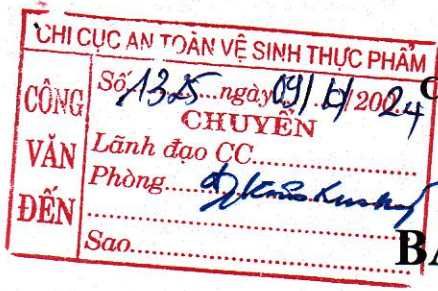 CHI CỤC AN TOÀN VỆ SINH THỰC PHẨM
CÔNG VĂN ĐẾN
Số 1325 ngày 09/ /2024
CHUYỂN
Lãnh đạo CC
Phòng
Sao
C
BA